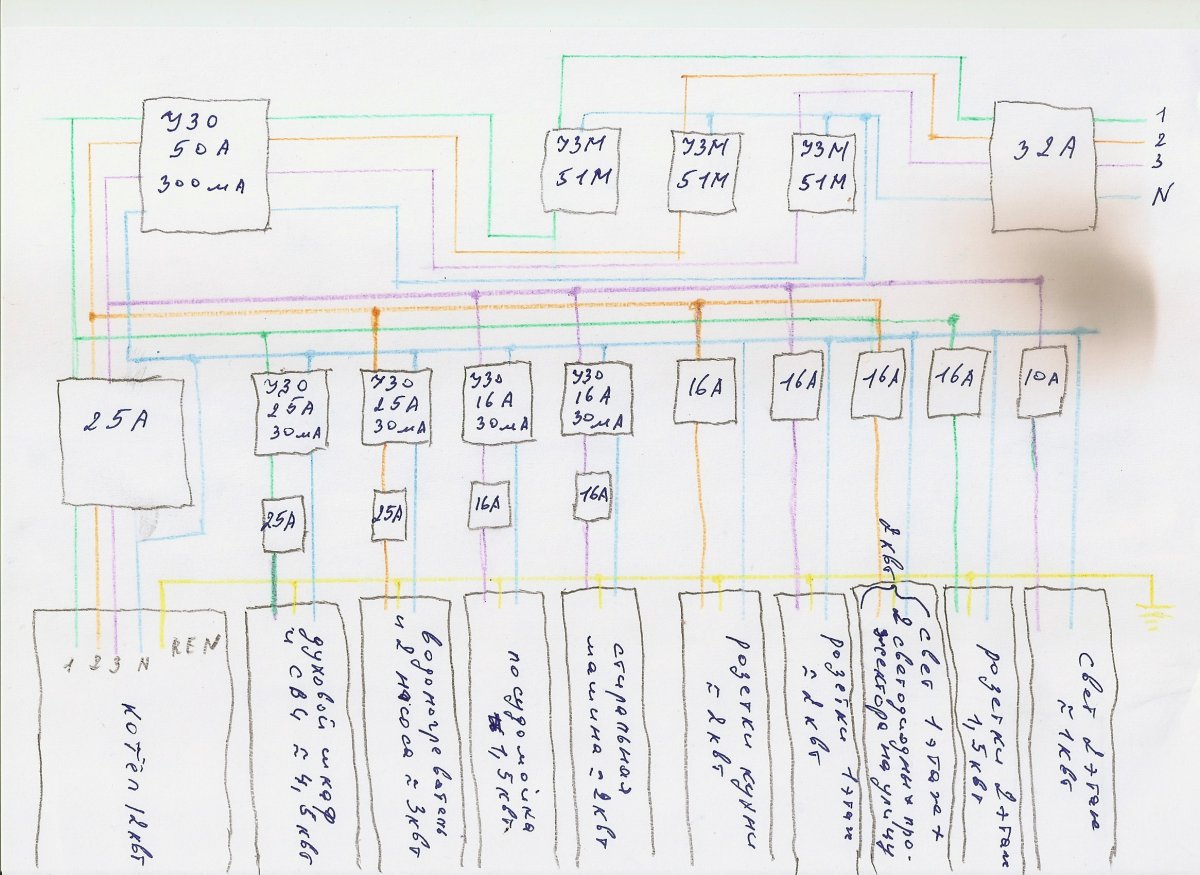 УЗО
50А
300мА
УЗМ
51М
УЗМ
51М
УЗМ
51М
32А
1
2
3
N
25А
УЗО
25А
30мА
УЗО
25А
30мА
УЗО
16А
30мА
УЗО
16А
30мА
16А
16А
16А
16А
10А
25А
25А
16А
16А
2 квт
1 2 3 N REN
котёл 12квт
духовой шкаф
и СВЧ ≈ 4,5 квт
водонагреватель
и 2 насоса ≈ 3квт
посудомойка
1,5квт
стиральная
машина ≈ 2квт
розетки кухни
≈ 2квт
розетки 1 этаж
≈ 2 квт
свет 1 этажа +
2 светодиодных про-
жектора на улицу
розетки 2 этаж
1,5квт
свет 2 этаж
≈ 1квт